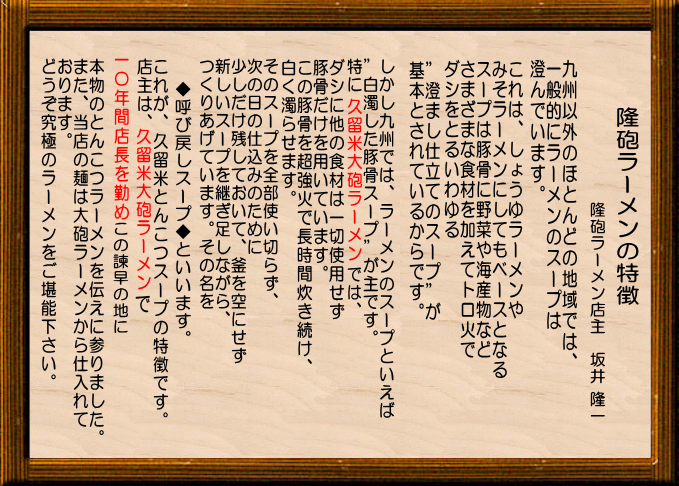 隆砲ラーメンの特徴
隆砲ラーメン店主　坂井 隆一
九州以外のほとんどの地域では、
一般的にラーメンのスープは
澄んでいます。
これは、しょうゆラーメンや
みそラーメンにしてもベースとなる
スープは豚骨に野菜や海産物など
さまざまな食材を加えてトロ火で
ダシをとるいわゆる
”澄まし仕立てのスープ”が
基本とされているからです。
しかし九州では、ラーメンのスープといえば
”白濁した豚骨スープ”が主です。
特に久留米大砲ラーメンでは、
ダシに他の食材は一切使用せず
豚骨だけを用いています。
この豚骨を超強火で長時間炊き続け、
白く濁らせます。
そのスープを全部使い切らず、
次の日の仕込みのために
少しだけ残しておいて、釜を空にせず
新しいスープを継ぎ足しながら、
つくりあげています。その名を
◆呼び戻しスープ◆といいます。
これが、久留米とんこつスープの特徴です。
店主は、久留米大砲ラーメンで
一〇年間店長を勤めこの諫早の地に
本物のとんこつラーメンを伝えに参りました。
また、当店の麺は大砲ラーメンから仕入れて
おります。
どうぞ究極のラーメンをご堪能下さい。